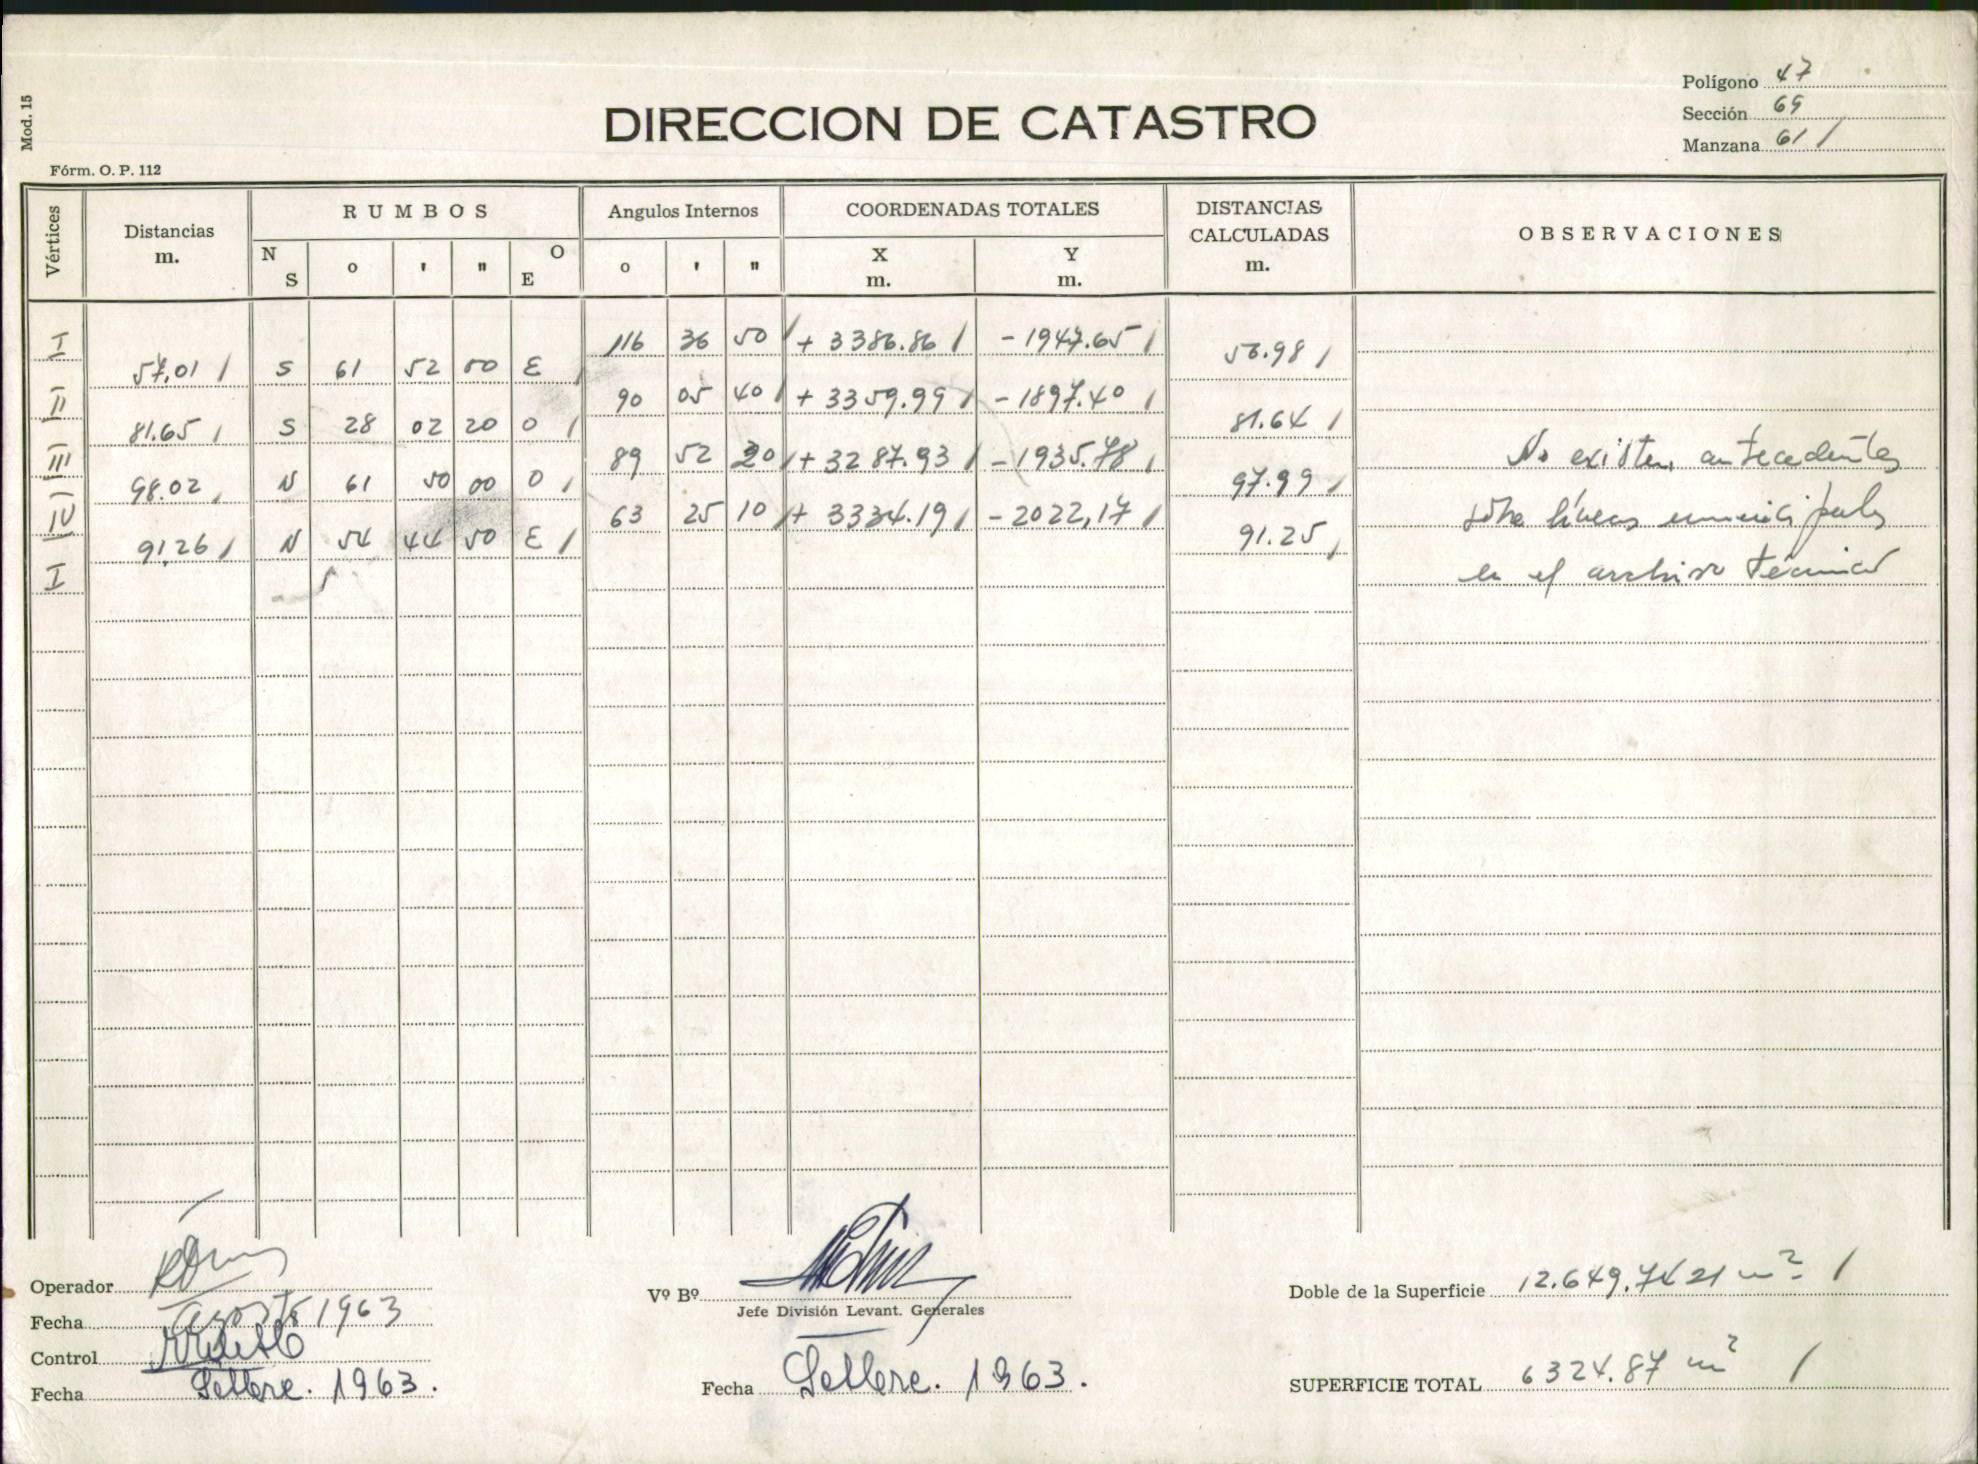 Mod. 15
Polígono 47
Sección 69
Manzana 61 /
DIRECCION DE CATASTRO
Fórm. O. P. 112
Vértices Distancias m. RUMBOS N S o ' " O E Angulos Internos o ' " COORDENADAS TOTALES X m. Y m. DISTANCIAS CALCULADAS m. OBSERVACIONES
I 116 36 50 + 3386.86 - 1947.65
57,01 S 61 52 50 E 56.98
II 90 05 40 + 3359.99 - 1897.40
81.65 S 28 02 20 O 81.64
III 89 52 20 + 3287.93 - 1935.78 No existen antecedentes
98.02 N 61 50 00 O 97.99
IV 63 25 10 + 3334.19 - 2022,17 sobre líneas municipales
91,26 N 54 44 50 E 91.25
I en el archivo técnico
Operador
Fecha Agosto 1963
Control
Fecha Setbre. 1963.
Vº Bº
Jefe División Levant. Generales
Fecha Setbre. 1963.
Doble de la Superficie 12.649.7421 m² /
SUPERFICIE TOTAL 6324.87 m² /